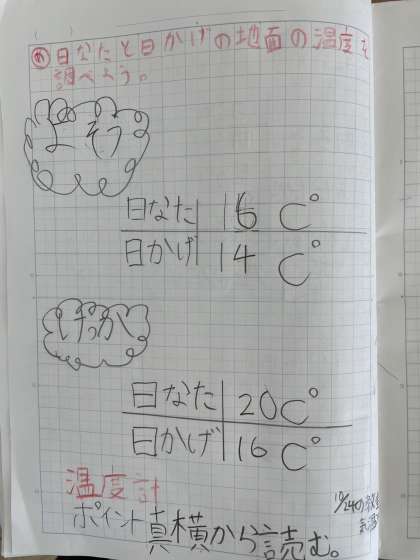 め 日なたと日かげの地面の温度を
調べよう。
よそう
日なた 16 C°
日かげ 14 C°
けっか
日なた 20C°
日かげ 16 C°
温度計
ポイント真横から読む。
10/24の教
気温